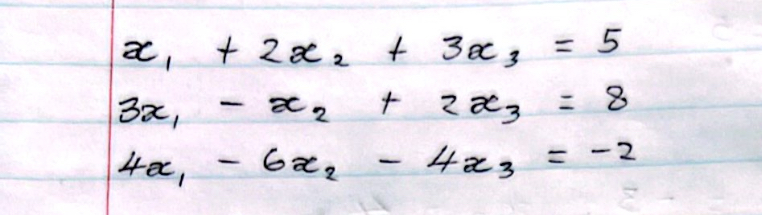 x₁ + 2x₂ + 3x₃ = 5
3x₁ - x₂ + 2x₃ = 8
4x₁ - 6x₂ - 4x₃ = -2